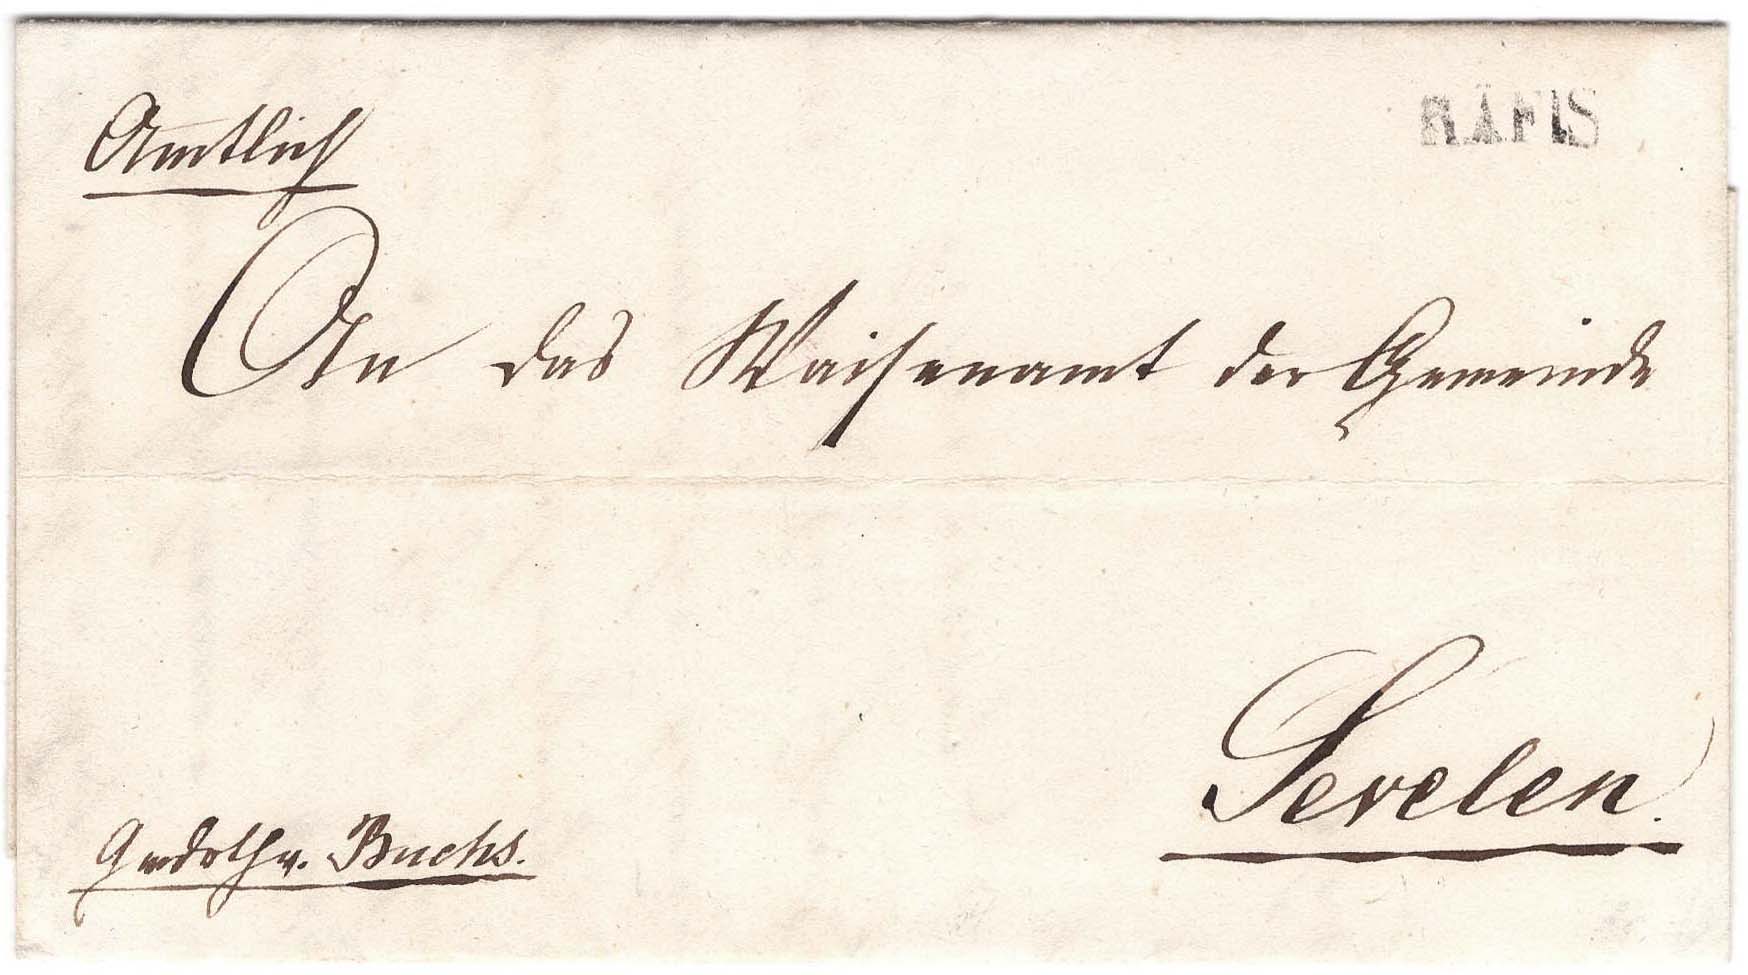 Amtlich
RÄFIS
An das Waisenamt der Gemeinde
Sevelen.
Buchs.